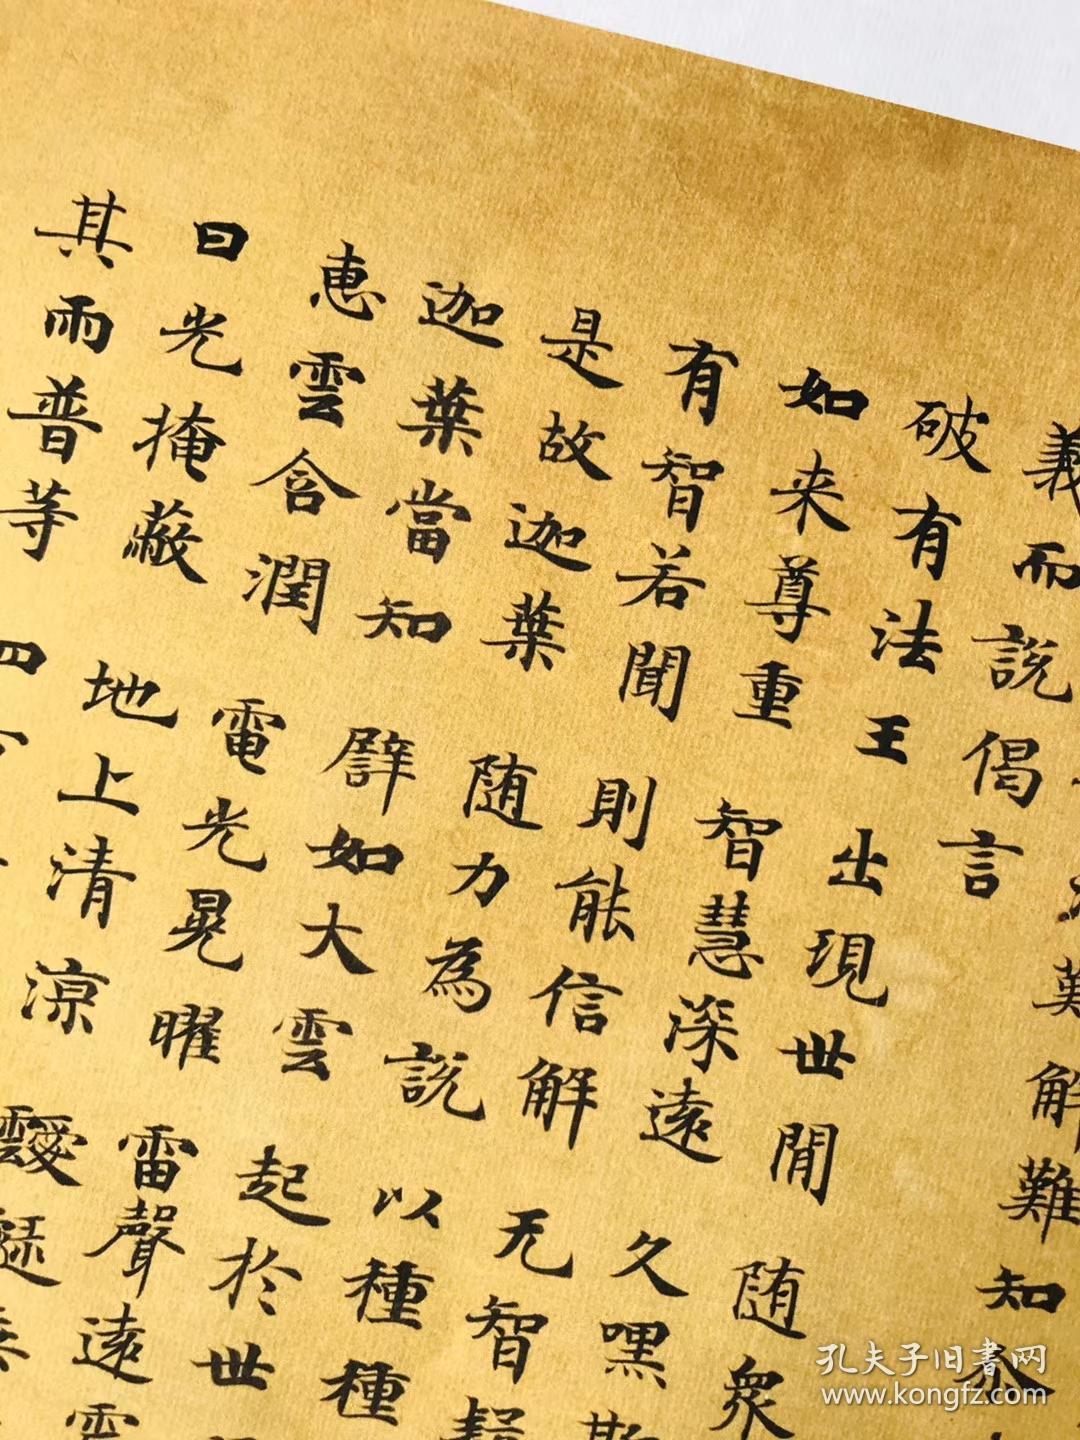 難解難知尒
義而說偈言
破有法王 出現世間 随衆
如来尊重 智慧深遠 久嘿斯
有智若聞 則能信解 无智
是故迦葉 随力為說 以種種
迦葉當知 譬如大雲 起於世
恵雲含潤 電光晃曜 雷聲遠
日光掩蔽 地上清涼 靉靆
其雨普等 四
孔夫子旧書网
www.kongfz.com